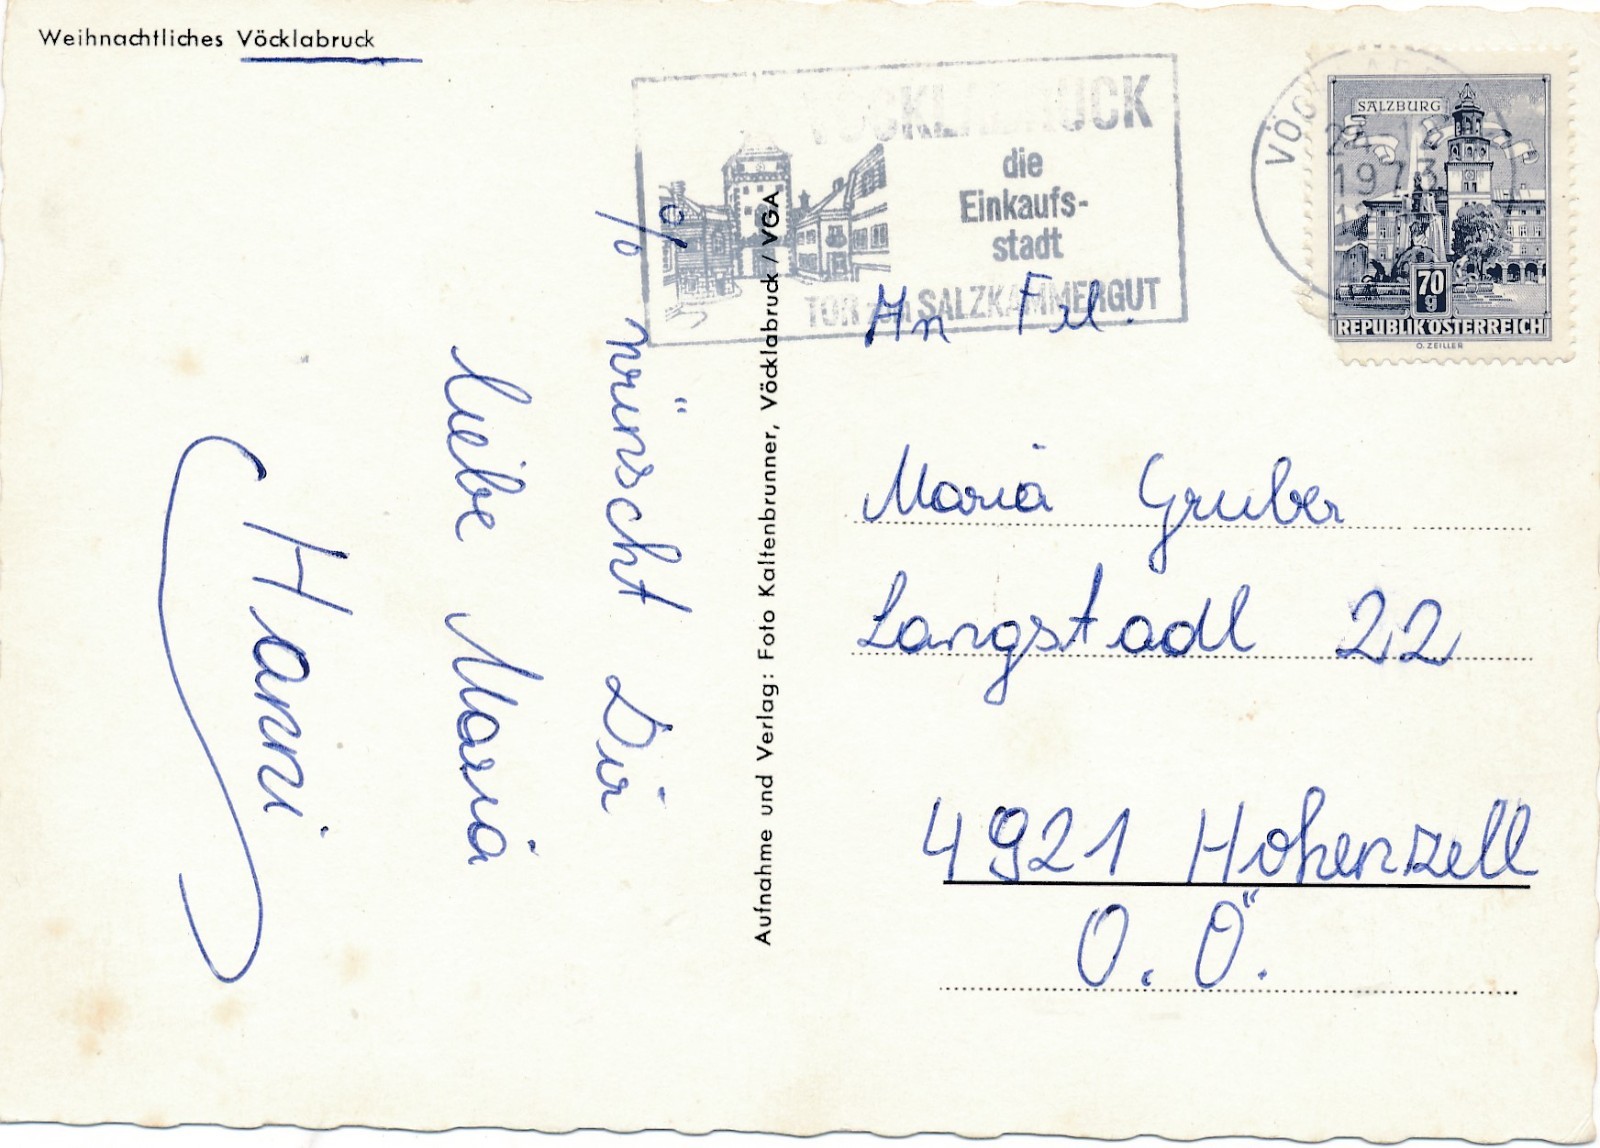 Weihnachtliches Vöcklabruck
VÖCKLABRUCK
die
Einkaufs-
stadt
TOR ZUM SALZKAMMERGUT
1973
SALZBURG
70
g
REPUBLIK ÖSTERREICH
O. ZEILLER
Aufnahme und Verlag: Foto Kaltenbrunner, Vöcklabruck / VGA
% wünscht Dir
liebe Maria
Hanni
An Frl.
Maria Gruber
Langstadl 22
4921 Hohenzell
O.Ö.